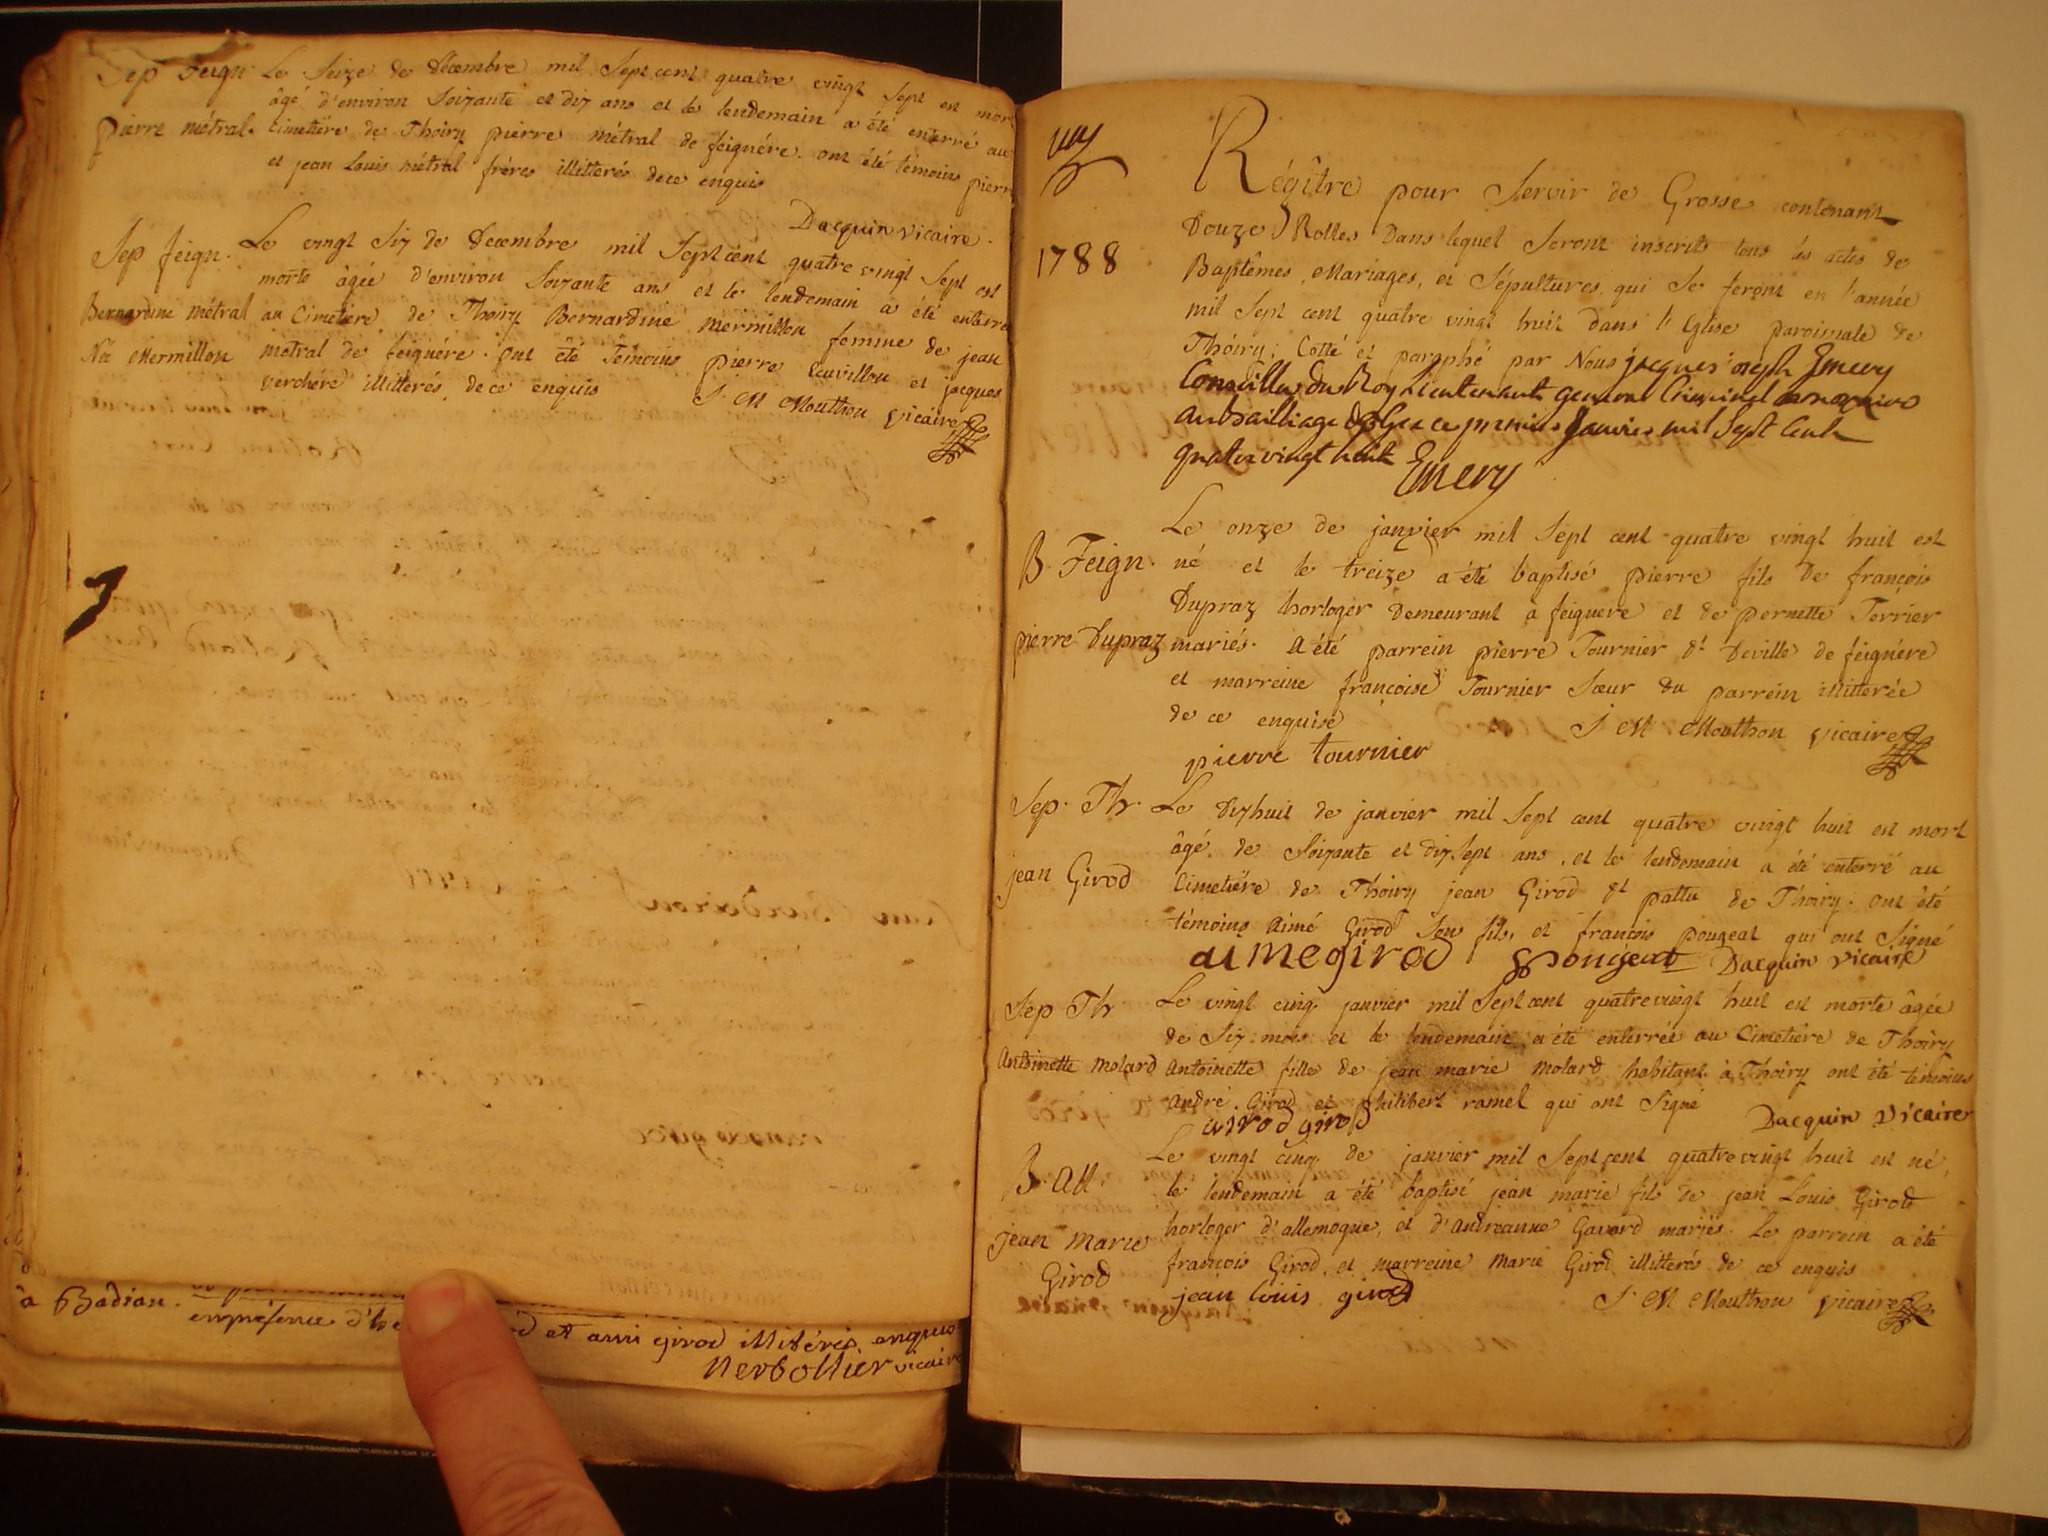 Sep Feign. Le Seize de décembre mil Sept cent quatre vingt Sept est mort
âgé d'environ Soixante et dix ans et le lendemain a été enterré au
pierre métral. Cimetière de Thoiry pierre métral de feignére. ont été témoins pierre
et jean Louis métral frères illitterés de ce enquis
Dacquin vicaire.
Sep feign. Le vingt Six de Decembre mil Sept cent quatre vingt Sept est
morte âgée d'environ Soixante ans et le lendemain a été enterré
Bernardine métral au Cimetiere de Thoiry Bernardine mermillon femme de jean
Née Mermillon métral de feignére. ont été Témoins pierre et jacques
verchére illitterés de ce enquis J M Mouthon vicaire
à Badian.
en présence et ami girod illitérés enquis
Nerbollier vicaire
Régître pour Servir de Grosse contenant
Douze Rolles Dans lequel Seront inscrits tous les actes de
1788
Baptêmes, Mariages, et Sépultures, qui Se feront en l'année
mil Sept cent quatre vingt huit dans l'Eglise paroissiale de
Thoiry; Cotté et paraphé par Nous jacques joseph Emery
Conseiller du Roy Lieutenant general Criminel
au bailliage de Gex ce premier Janvier mil Sept Cent
quatre vingt huit Emery
Le onze de janvier mil Sept cent quatre vingt huit est
B. Feign. né et le treize a été baptisé pierre fils de françois
Dupraz horloger demeurant à feignere et de pernette Terrier
pierre Dupraz mariés. a été parrein pierre Tournier dt Deville de feignére
et marreine françoise Tournier Sœur du parrein illitterée
de ce enquise J M Mouthon vicaire
pierre tournier
Sep. Th. Le Dixhuit de janvier mil Sept cent quatre vingt huit est mort
âgé de Soixante et dix Sept ans, et le lendemain a été enterré au
jean Girod Cimetière de Thoiry jean Girod dt pattu de Thoiry. ont été
témoins Aimé Girod Son fils, et françois pougeat qui ont Signé
aime girod fpougeat Dacquin vicaire
Sep Th Le vingt cinq janvier mil Sept cent quatrevingt huit est morte âgée
de Six mois et le lendemain a été enterrée au Cimetière de Thoiry
Antoinette Molard Antoinette fille de jean marie Molard habitant à Thoiry ont été témoins
andré Girod et philibert ramel qui ont Signé
girod Dacquin vicaire
Le vingt cinq de janvier mil Sept cent quatrevingt huit est né,
B. All. le lendemain a été baptisé jean marie fils de jean Louis Girod
horloger d'allemogne, et d'andreanne Gavard mariés. Le parrein a été
jean Marie françois Girod, et marreine Marie Girod illitterés de ce enquis
Girod
jean louis girod J M Mouthon vicaire